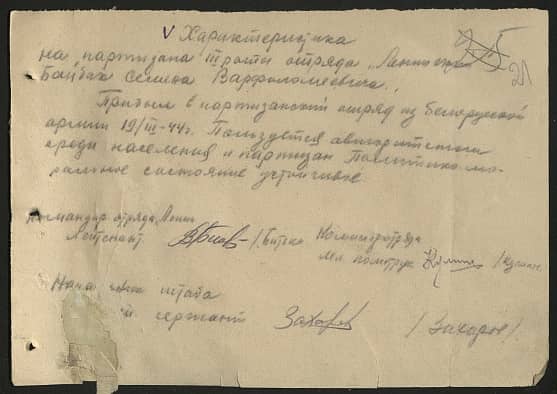 V Характеристика
на партизана III роты отряда
Байбак Семена Варфоломеевича.
Прибыл в партизанский отряд из Белорусской
армии 19/III-44г. Пользуется авторитетом
среди населения и партизан Политико-мо-
ральное состояние устойчивое.
21
Командир отряда
Лейтенант
Комиссар отряда
мл. политрук
штаба
сержант Захаров /Захаров/.